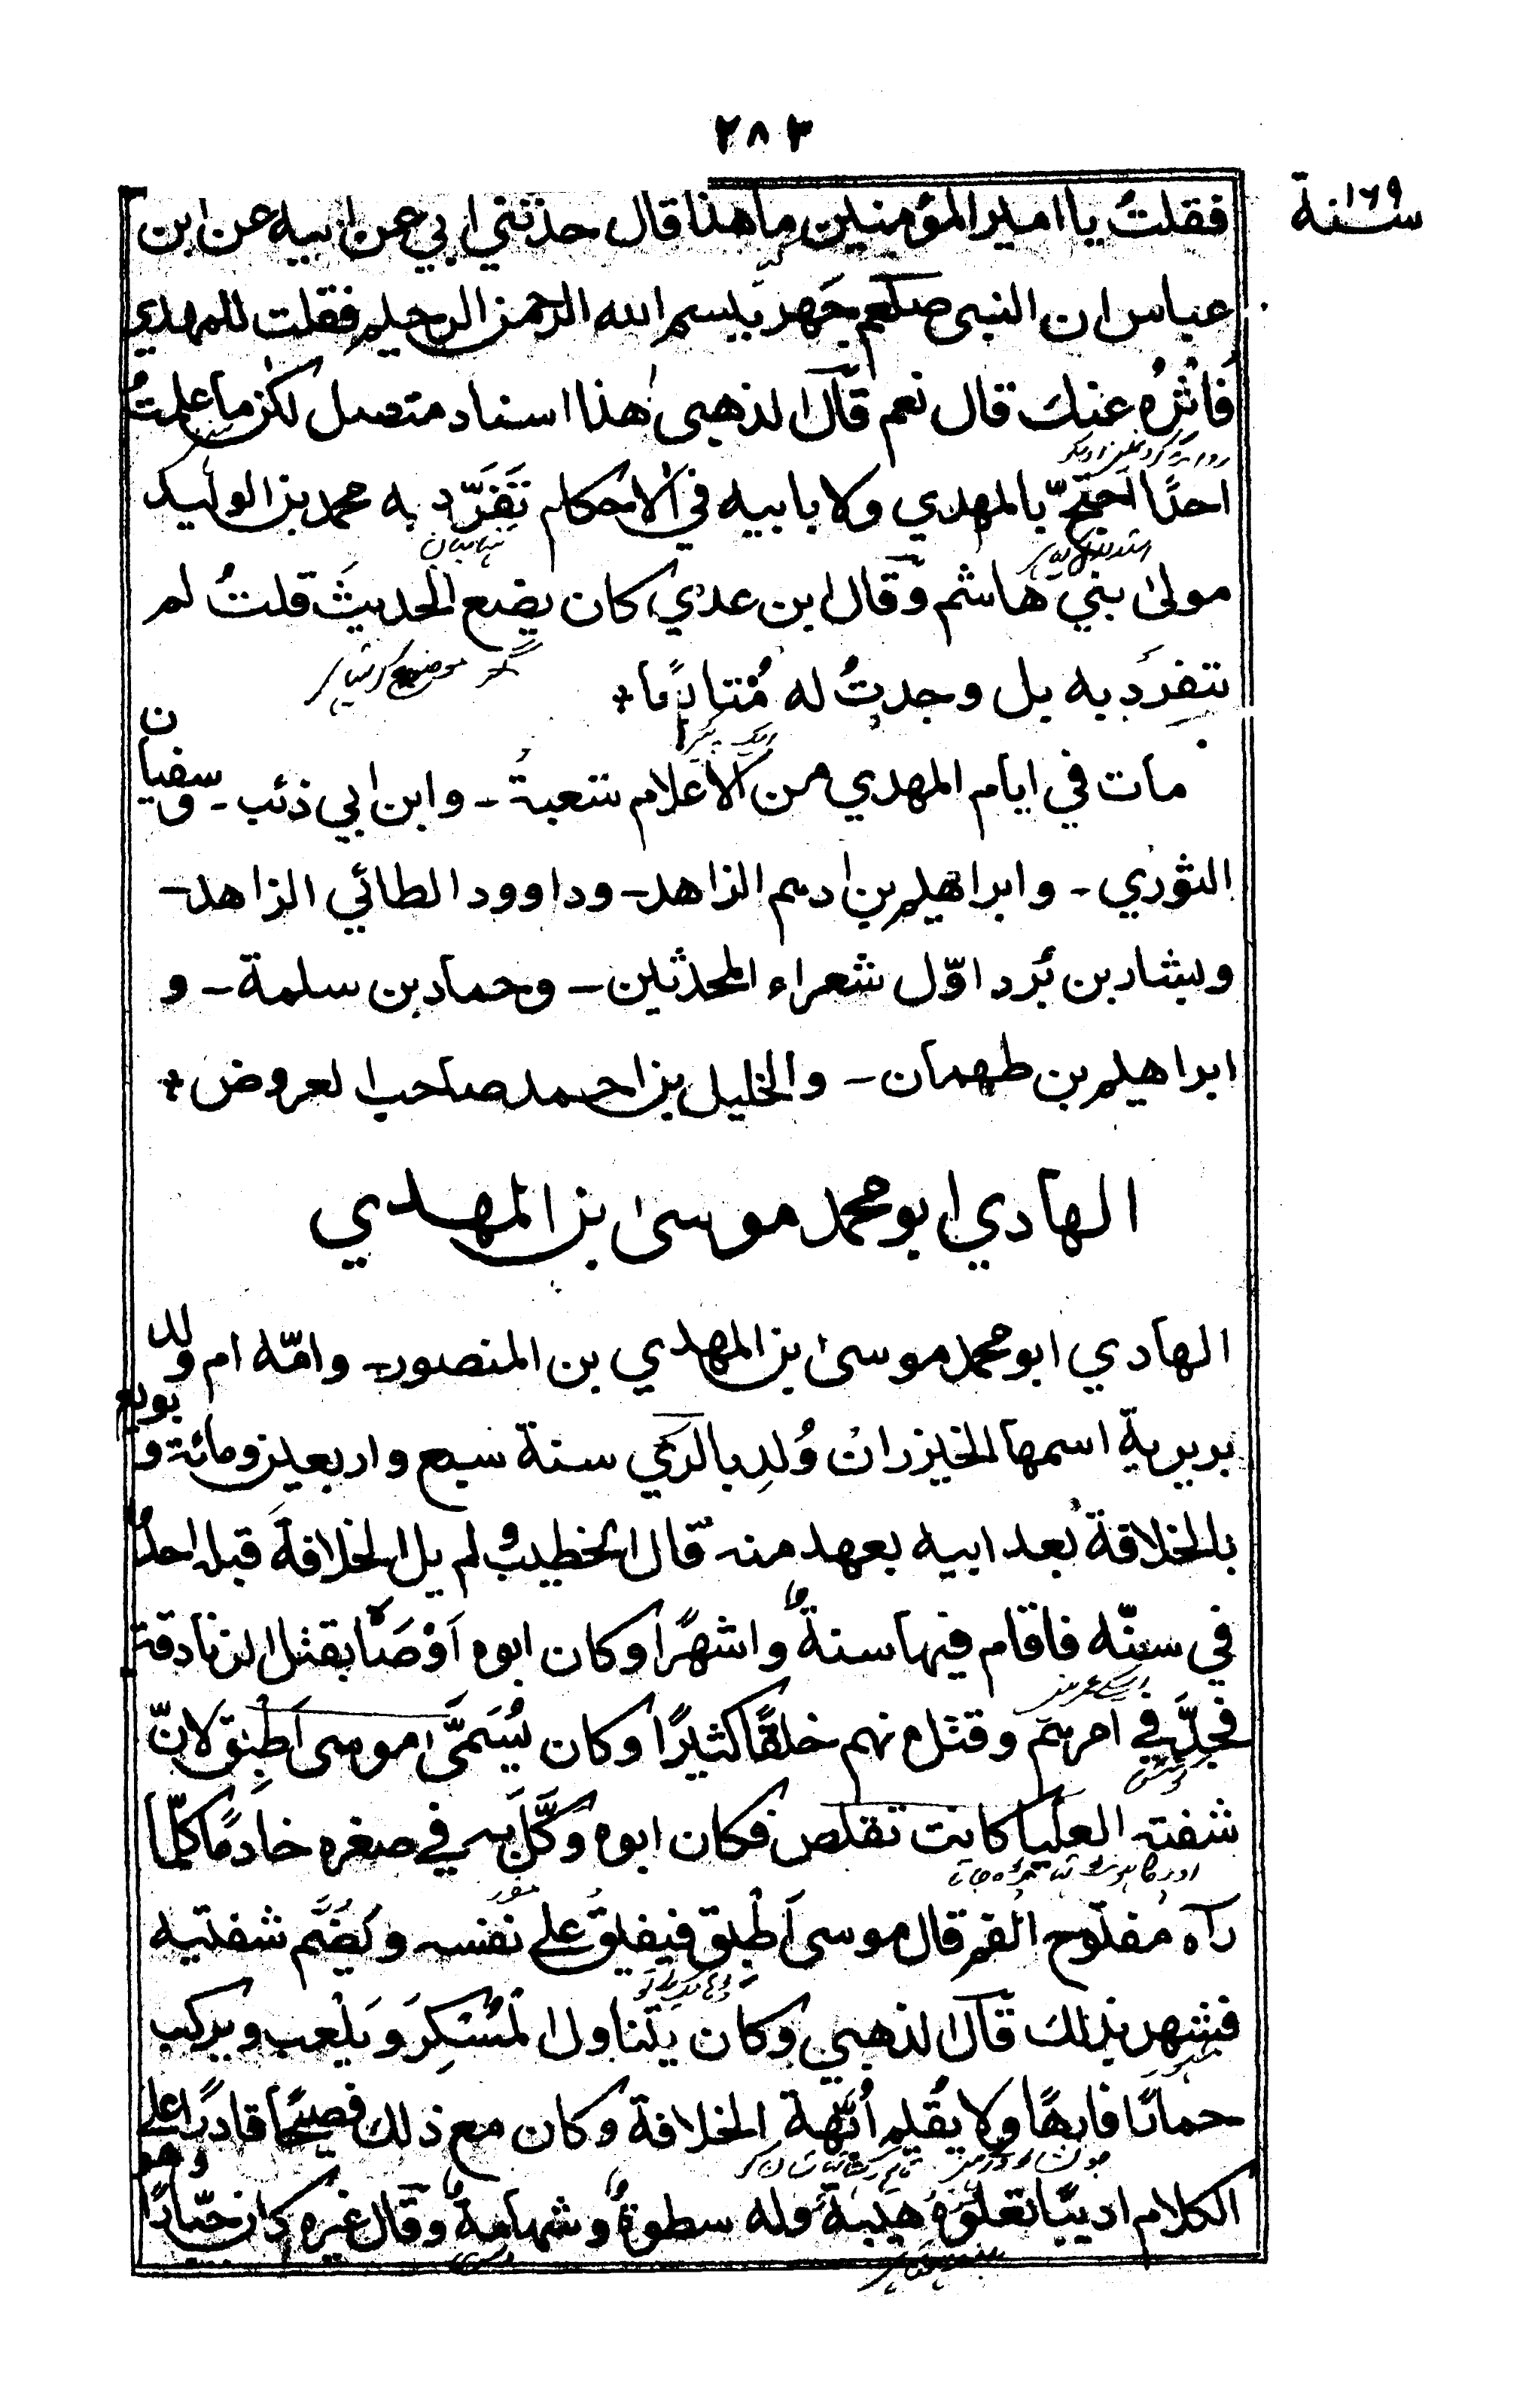 ٢٨٣
سنة ١٦٩
فقلتُ يا امير المؤمنين ما هذا قال حدثني ابي عن ابيه عن ابن
عباس ان النبى صلعم جَهر ببسم الله الرحمن الرحيم فقلت للمهدي
فَاٰثرُه عنك قال نعم قال الذهبى هذا اسناد متصل لكن ما علمتُ
احدًا احتجّ بالمهدي ولا بابيه في الاحكام تَفَرَّد به محمد بن الوليد
مولىٰ بني هاشم وقال ابن عدي كان يضع الحديث قلتُ لم
يتفرد به بل وجدتُ له مُتابعًا *
مات في ايام المهدي من الاعلام شعبة - وابن ابي ذئب - وسفيان
الثوري - وابراهيم بن ادهم الزاهد - وداوود الطائي الزاهد -
وبشار بن بُرد اوّل شعراء المحدثين - وحماد بن سلمة - و
ابراهيم بن طهمان - والخليل بن احمد صاحب العروض *
الهادي ابو محمد موسىٰ بن المهدي
الهادي ابو محمد موسىٰ بن المهدي بن المنصور - وامّه ام ولد
بربرية اسمها الخيزران وُلِد بالري سنة سبع واربعين ومائة وبويع
بالخلافة بعد ابيه بعهد منه قال الخطيب ولم يل الخلافة قبله احدٌ
في سنّه فاقام فيها سنةً واشهرًا وكان ابوه اَوْصَاه بقتل الزنادقة
فجدَّ في امرهم وقتل منهم خلقًا كثيرًا وكان يُسَمَّى موسى اَطْبِق لانّ
شفته العليا كانت تقلص فكان ابوه وكَّل به في صغره خادمًا كلّما
رآه مفتوح الفم قال موسى اَطْبِق فيفيق على نفسه ويَضُمّ شفتيه
فشهر بذلك قال الذهبي وكان يتناول المُسْكِرَ ويَلْعب ويركب
حمارًا فارهًا ولا يُقيم اُبَّهة الخلافة وكان مع ذلك فصيحًا قادرًا على
الكلام اديبًا تعلوه هيبة وله سطوةٌ وشهامةٌ وقال غيره كان جبّارًا وهو